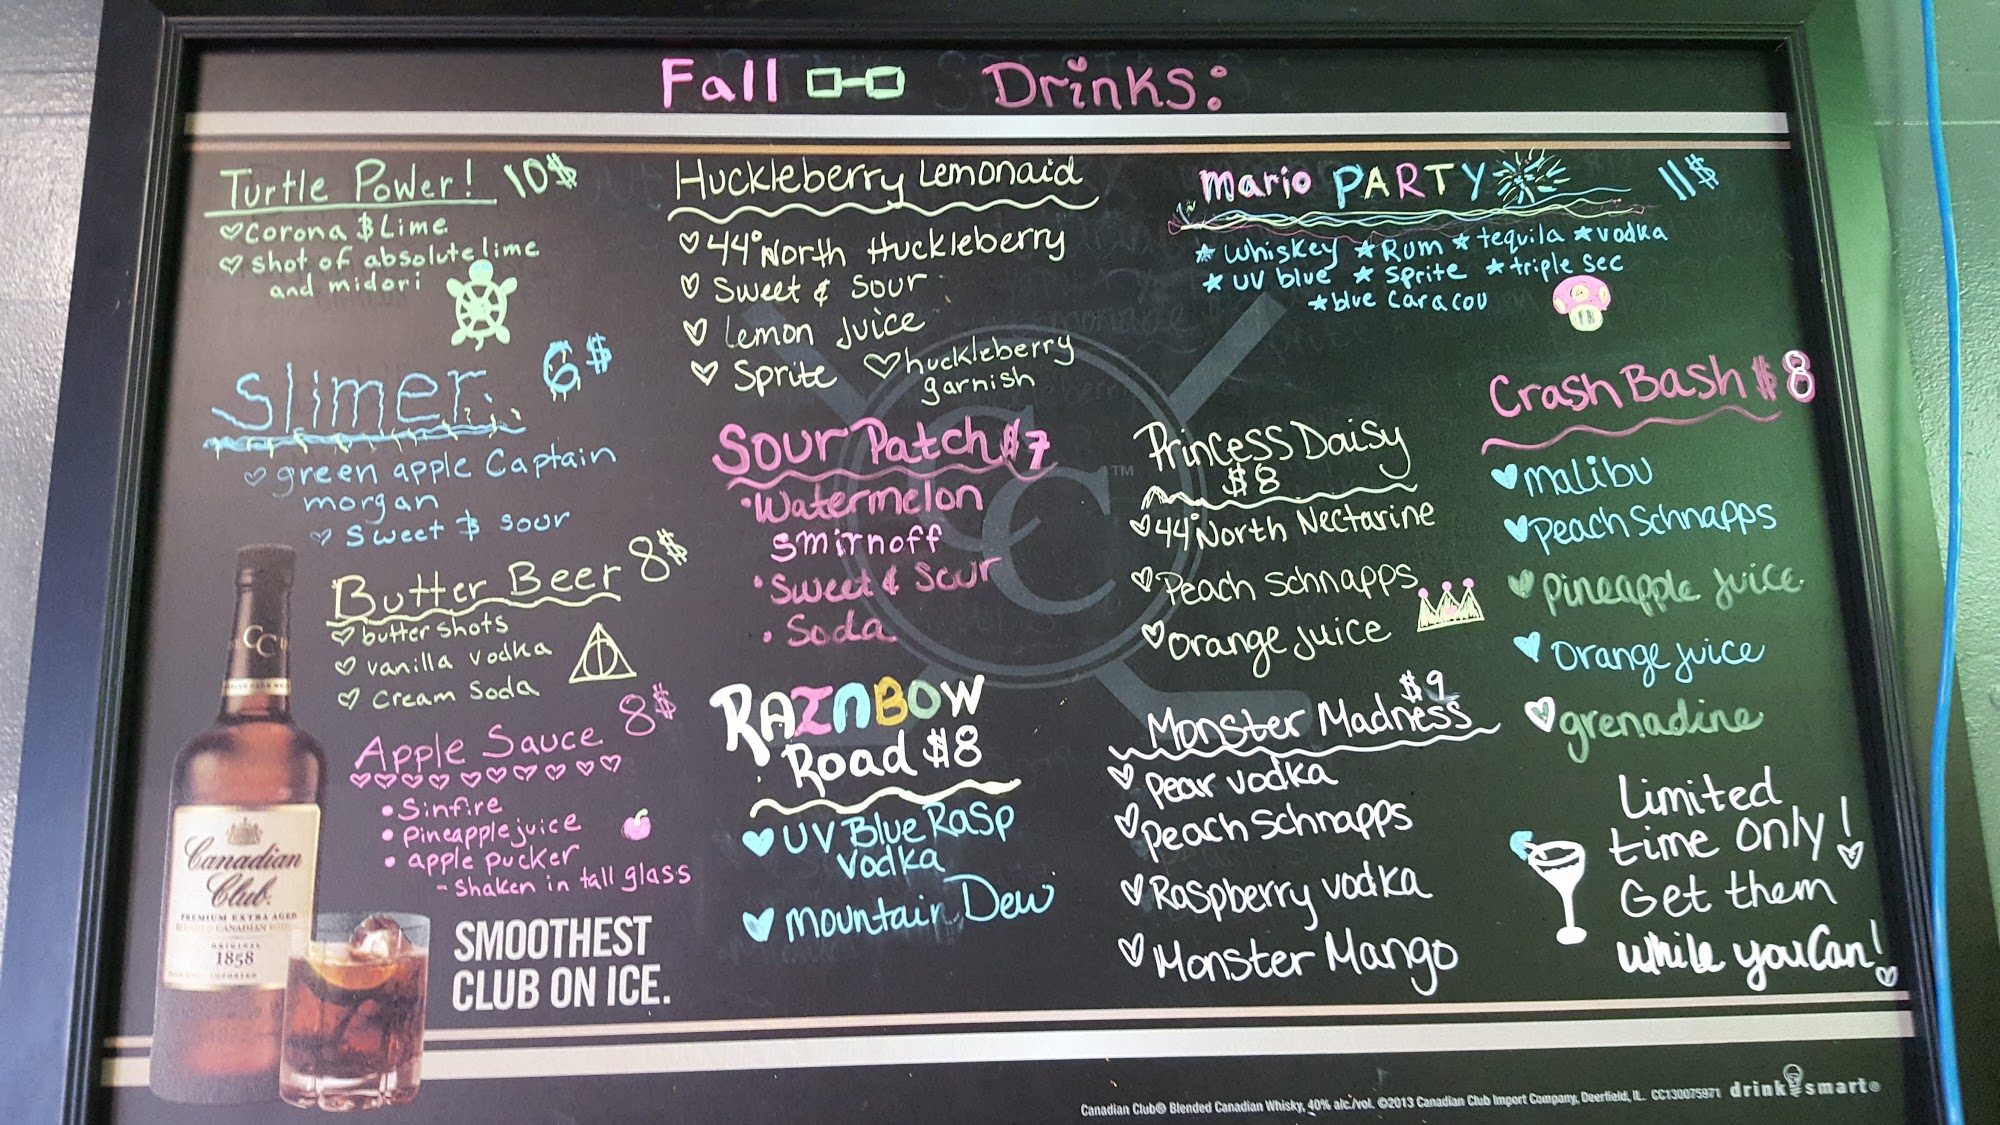 Fall Drinks:
Turtle Power! 10$
corona $ Lime
shot of absolute lime
and midori
Slimer 6$
green apple Captain
morgan
sweet $ sour
Butter Beer 8$
buttershots
vanilla vodka
cream soda
Apple Sauce 8$
Sinfire
pineapple juice
apple pucker
- shaken in tall glass
Huckleberry Lemonaid
44° North Huckleberry
Sweet & Sour
lemon juice
Sprite
huckleberry
garnish
Sour Patch $7
Watermelon
smirnoff
Sweet & Sour
Soda
RAINBOW
Road $8
UV Blue Rasp
vodka
Mountain Dew
Mario PARTY 11$
Whiskey Rum tequila vodka
UV blue Sprite triple sec
blue Caracou
Princess Daisy
$8
44° North Nectarine
Peach Schnapps
orange juice
Monster Madness $9
pear vodka
peach Schnapps
Raspberry vodka
Monster Mango
Crash Bash $8
malibu
Peach Schnapps
pineapple juice
Orange juice
grenadine
Limited
time only!
Get them
while you can!
CC
CC™
Canadian
Club.
PREMIUM EXTRA AGED
BLENDED CANADIAN
ORIGINAL
1858
IMPORTED
SMOOTHEST
CLUB ON ICE.
Canadian Club® Blended Canadian Whisky, 40% alc./vol. ©2013 Canadian Club Import Company, Deerfield, IL. CC130075971 drink smart®